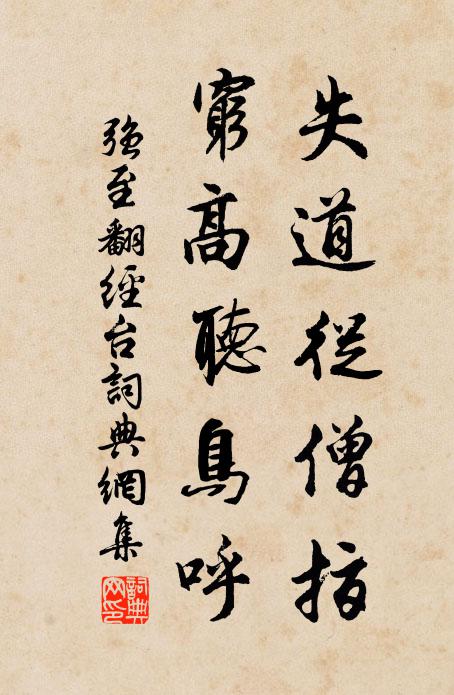 失道從僧指
窮高聽鳥呼
強至翻經台詞典網集